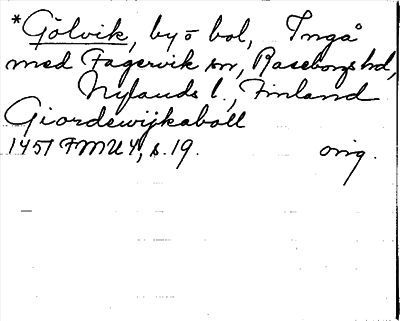 *Gölvik, by o bol, Ingå
med Fagervik sn, Raseborgs hd,
Nylands l., Finland
Giordewijkaboll
1451 FMU 4, s. 19. orig.